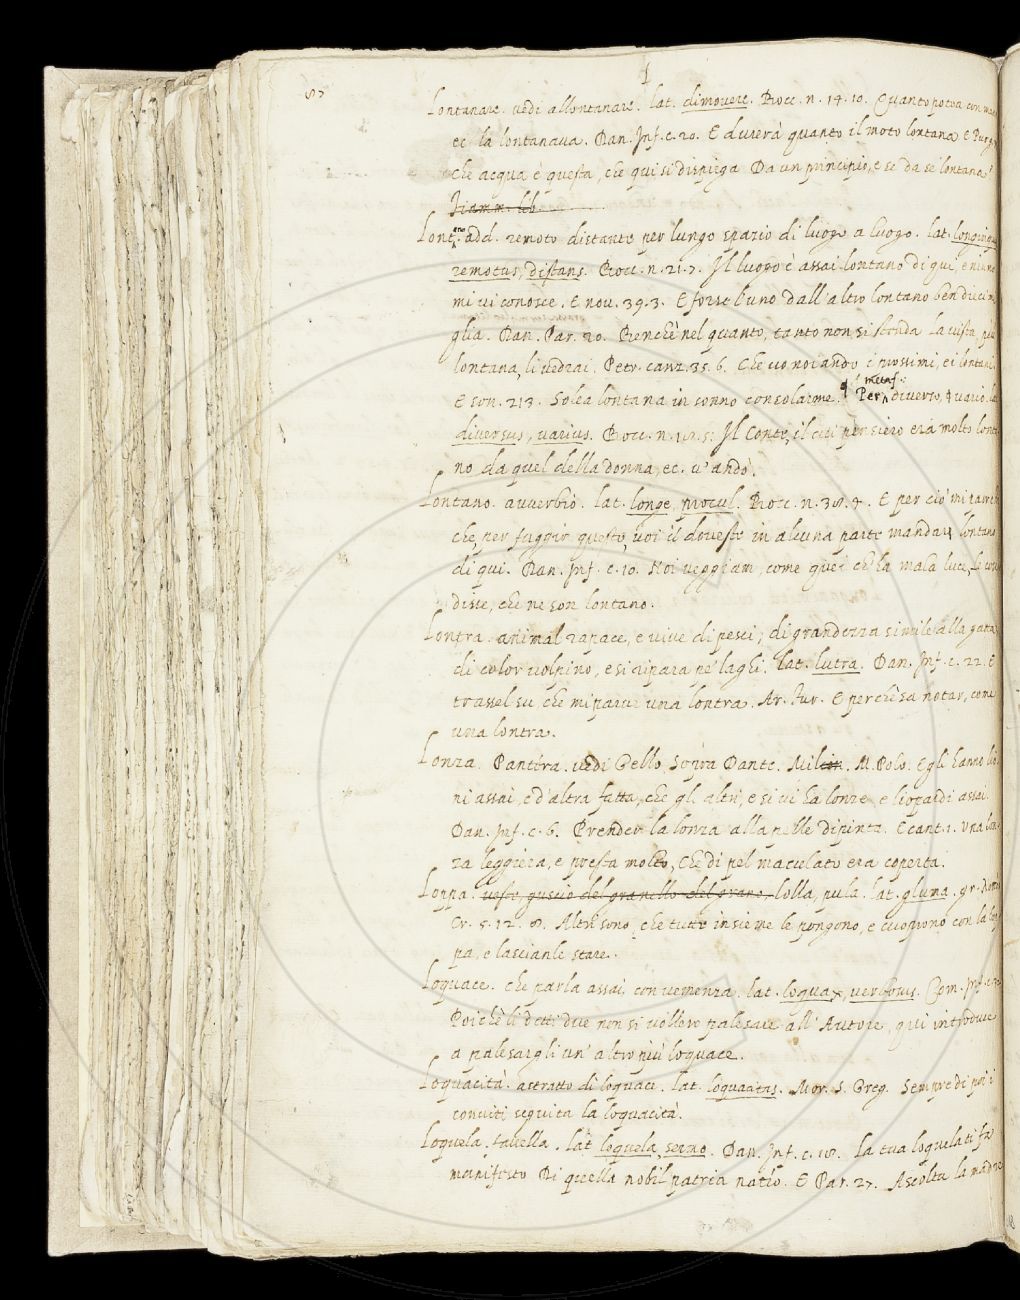 Lontanare. vedi allontanare. lat. dimovere. Bocc. n. 14. 10. Quanto potea con
ec la lontanava. Dan. Inf. c. 20. E dverà quanto il moto lontana. E Purg.
che acqua è questa, che qui si dispiega Da un principio, e se da se lontana?
Fiamm. lib.
Lontano. add. remoto distante per lungo spazio di luogo a luogo. lat. longinquus
remotus, distans. Bocc. n. 21. 7. Il luogo è assai lontano di qui, e niuno
mi vi conosce. E nov. 39. 3. E forse l'uno dall'altro lontano ben dieci mi
glia. Dan. Par. 20. Benchè nel quanto, tanto non si stenda La vista più
lontana, li vedrai. Petr. canz. 35. 6. Che vo noiando i prossimi, e i lontani.
E son. 213. Solea lontana in sonno consolarme. Per metaf. diverso, vario. lat.
diversus, varius. Bocc. n. 18. 5. Il Conte, il cui pensiero era molto lonta
no da quel della donna, ec. v'andò.
Lontano. avverbio. lat. longe, procul. Bocc. n. 38. 4. E per ciò mi parreb
che, per fuggir questo, voi il doveste in alcuna parte mandar lontano
di qui. Dan. Inf. c. 10. Noi veggiam, come quei ch'ha mala luce, Le cose
disse, che ne son lontano.
Lontra. animal rapace, e vive di pesci; di grandezza simile alla gatta,
di color volpino, e si ripara ne' laghi. lat. lutra. Dan. Inf. c. 22. E
trassel su, che mi parve una lontra. Ar. Fur. E perchè sa notar, come
una lontra.
Lonza. Pantéra. vedi Gello Sopra Dante. M. Polo. Egli hanno lio
ni assai, e d'altra fatta, che gli altri, e sì vi ha lonze, e liopardi assai.
Dan. Inf. c. 6. Prender la lonza alla pelle dipinta. E cant. 1. Una lon
za leggiera, e presta molto, Che di pel maculato era coperta.
Loppa. veste, guscio del granello del grano, lolla, pula. lat. gluma. gr.
Cr. 5. 12. 8. Altri sono, che tutte insieme le pongono, e cuoprono con la lop
pa, e lascianle stare.
Loquace. che parla assai, con vemenza. lat. loquax, verbosus. Com. Inf.
Poichè li detti due non si vollero palesare all'Autore, qui introduce
a palesargli un'altro più loquace.
Loquacità. astratto di loquace. lat. loquacitas. Mor. S. Greg. Sempre di poi i
conviti seguita la loquacità.
Loquela. favella. lat. loquela, sermo. Dan. Inf. c. 10. La tua loquela ti fa
manifesto Di quella nobil patria natío. E Par. 27. Ascolta la madre